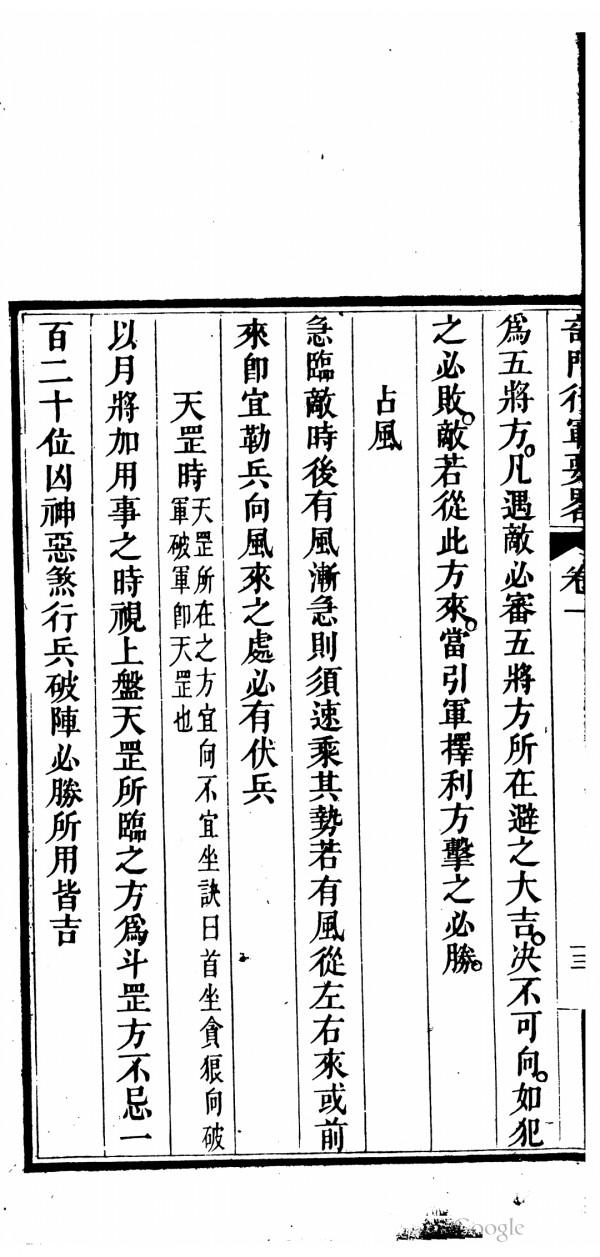 奇門行軍要畧 卷一 十三
爲五將方。凡遇敵必審五將方所在避之大吉。决不可向。如犯
之必敗。敵若從此方來。當引軍擇利方擊之必勝。
占風
急臨敵時後有風漸急則須速乘其勢若有風從左右來或前
來卽宜勒兵向風來之處必有伏兵
天罡時天罡所在之方宜向不宜坐訣曰首坐貪狼向破
軍破軍卽天罡也
以月將加用事之時視上盤天罡所臨之方爲斗罡方不忌一
百二十位凶神惡煞行兵破陣必勝所用皆吉
Google